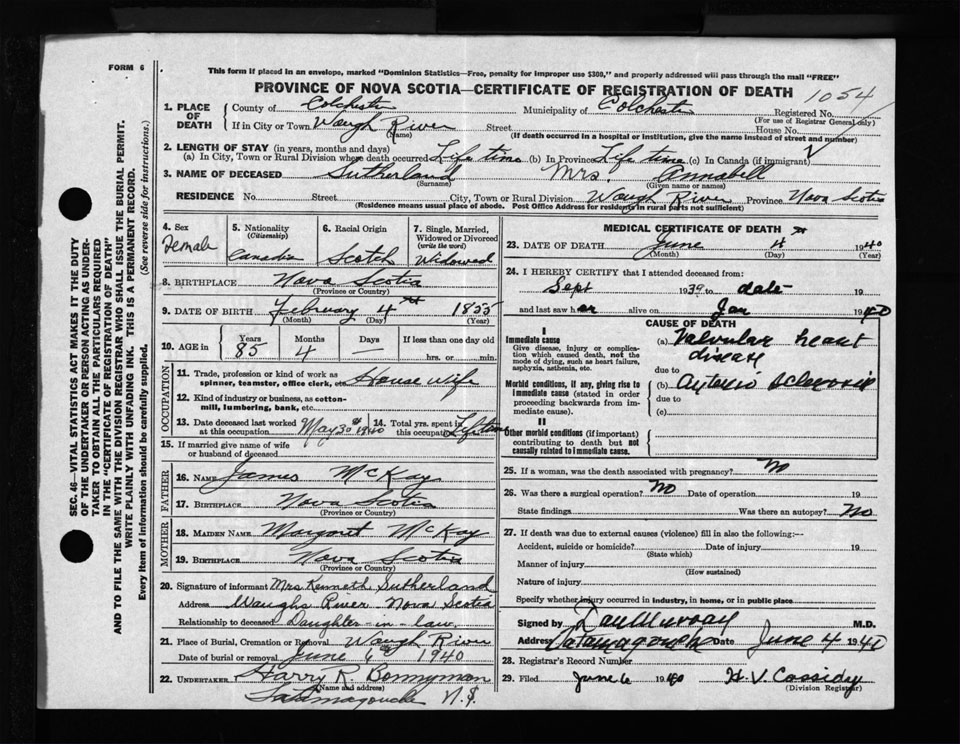 FORM 6
This form if placed in an envelope, marked "Dominion Statistics—Free, penalty for improper use $300," and properly addressed will pass through the mail "FREE"
PROVINCE OF NOVA SCOTIA—CERTIFICATE OF REGISTRATION OF DEATH
1054
1. PLACE OF DEATH County of Colchester Municipality of Colchester Registered No.
(For use of Registrar General only)
If in City or Town Waugh River Street House No.
(Name) (If death occurred in a hospital or institution, give the name instead of street and number)
2. LENGTH OF STAY (in years, months and days)
(a) In City, Town or Rural Division where death occurred Life time (b) In Province Life time (c) In Canada (if immigrant)
3. NAME OF DECEASED Sutherland Mrs. Annabell
(Surname) (Given name or names)
RESIDENCE No. Street City, Town or Rural Division Waugh River Province Nova Scotia
(Residence means usual place of abode. Post Office Address for residents in rural parts not sufficient)
4. Sex Female
5. Nationality (Citizenship) Canadia
6. Racial Origin Scotch
7. Single, Married, Widowed or Divorced (write the word) Widowed
8. BIRTHPLACE Nova Scotia
(Province or Country)
9. DATE OF BIRTH February 4th 1855
(Month) (Day) (Year)
10. AGE in Years Months Days If less than one day
85 4 — hrs. or min.
OCCUPATION
11. Trade, profession or kind of work as spinner, teamster, office clerk, etc. House wife
12. Kind of industry or business, as cotton-mill, lumbering, bank, etc.
13. Date deceased last worked at this occupation May 30th 1940
14. Total yrs. spent in this occupation Lifetime
15. If married give name of wife or husband of deceased
FATHER
16. NAME James McKay
17. BIRTHPLACE Nova Scotia
(Province or Country)
MOTHER
18. MAIDEN NAME Margaret McKay
19. BIRTHPLACE Nova Scotia
(Province or Country)
20. Signature of informant Mrs Kenneth Sutherland
Address Waughs River Nova Scotia
Relationship to deceased Daughter-in-law
21. Place of Burial, Cremation or Removal Waugh River
Date of burial or removal June 6th 1940
22. UNDERTAKER Harry R. Bonnyman
(Name and address)
Tatamagouche N.S.
MEDICAL CERTIFICATE OF DEATH
23. DATE OF DEATH June 4th 1940
(Month) (Day) (Year)
24. I HEREBY CERTIFY that I attended deceased from:
Sept 1939 to date 19
and last saw her alive on Jan 1940
CAUSE OF DEATH
I
Immediate cause
Give disease, injury or complication which caused death, not the mode of dying, such as heart failure, asphyxia, asthenia, etc.
(a) Valvular heart disease
due to
Morbid conditions, if any, giving rise to immediate cause (stated in order proceeding backwards from immediate cause).
(b) Arterio sclerosis
due to
(c)
II
Other morbid conditions (if important) contributing to death but not causally related to immediate cause.
25. If a woman, was the death associated with pregnancy? No
26. Was there a surgical operation? No Date of operation 19
State findings Was there an autopsy? No
27. If death was due to external causes (violence) fill in also the following:—
Accident, suicide or homicide? Date of injury 19
(State which)
Manner of injury
(How sustained)
Nature of injury
Specify whether injury occurred in industry, in home, or in public place
Signed by Dan Murray M.D.
Address Tatamagouche Date June 4 1940
28. Registrar's Record Number
29. Filed June 6 1940 H. V. Cassidy
(Division Registrar)
SEC. 46—VITAL STATISTICS ACT MAKES IT THE DUTY
OF THE UNDERTAKER OR PERSON ACTING AS UNDER-
TAKER TO OBTAIN ALL THE PARTICULARS REQUIRED
IN THE "CERTIFICATE OF REGISTRATION OF DEATH"
AND TO FILE THE SAME WITH THE DIVISION REGISTRAR WHO SHALL ISSUE THE BURIAL PERMIT.
WRITE PLAINLY WITH UNFADING INK. THIS IS A PERMANENT RECORD.
Every item of information should be carefully supplied. (See reverse side for instructions.)